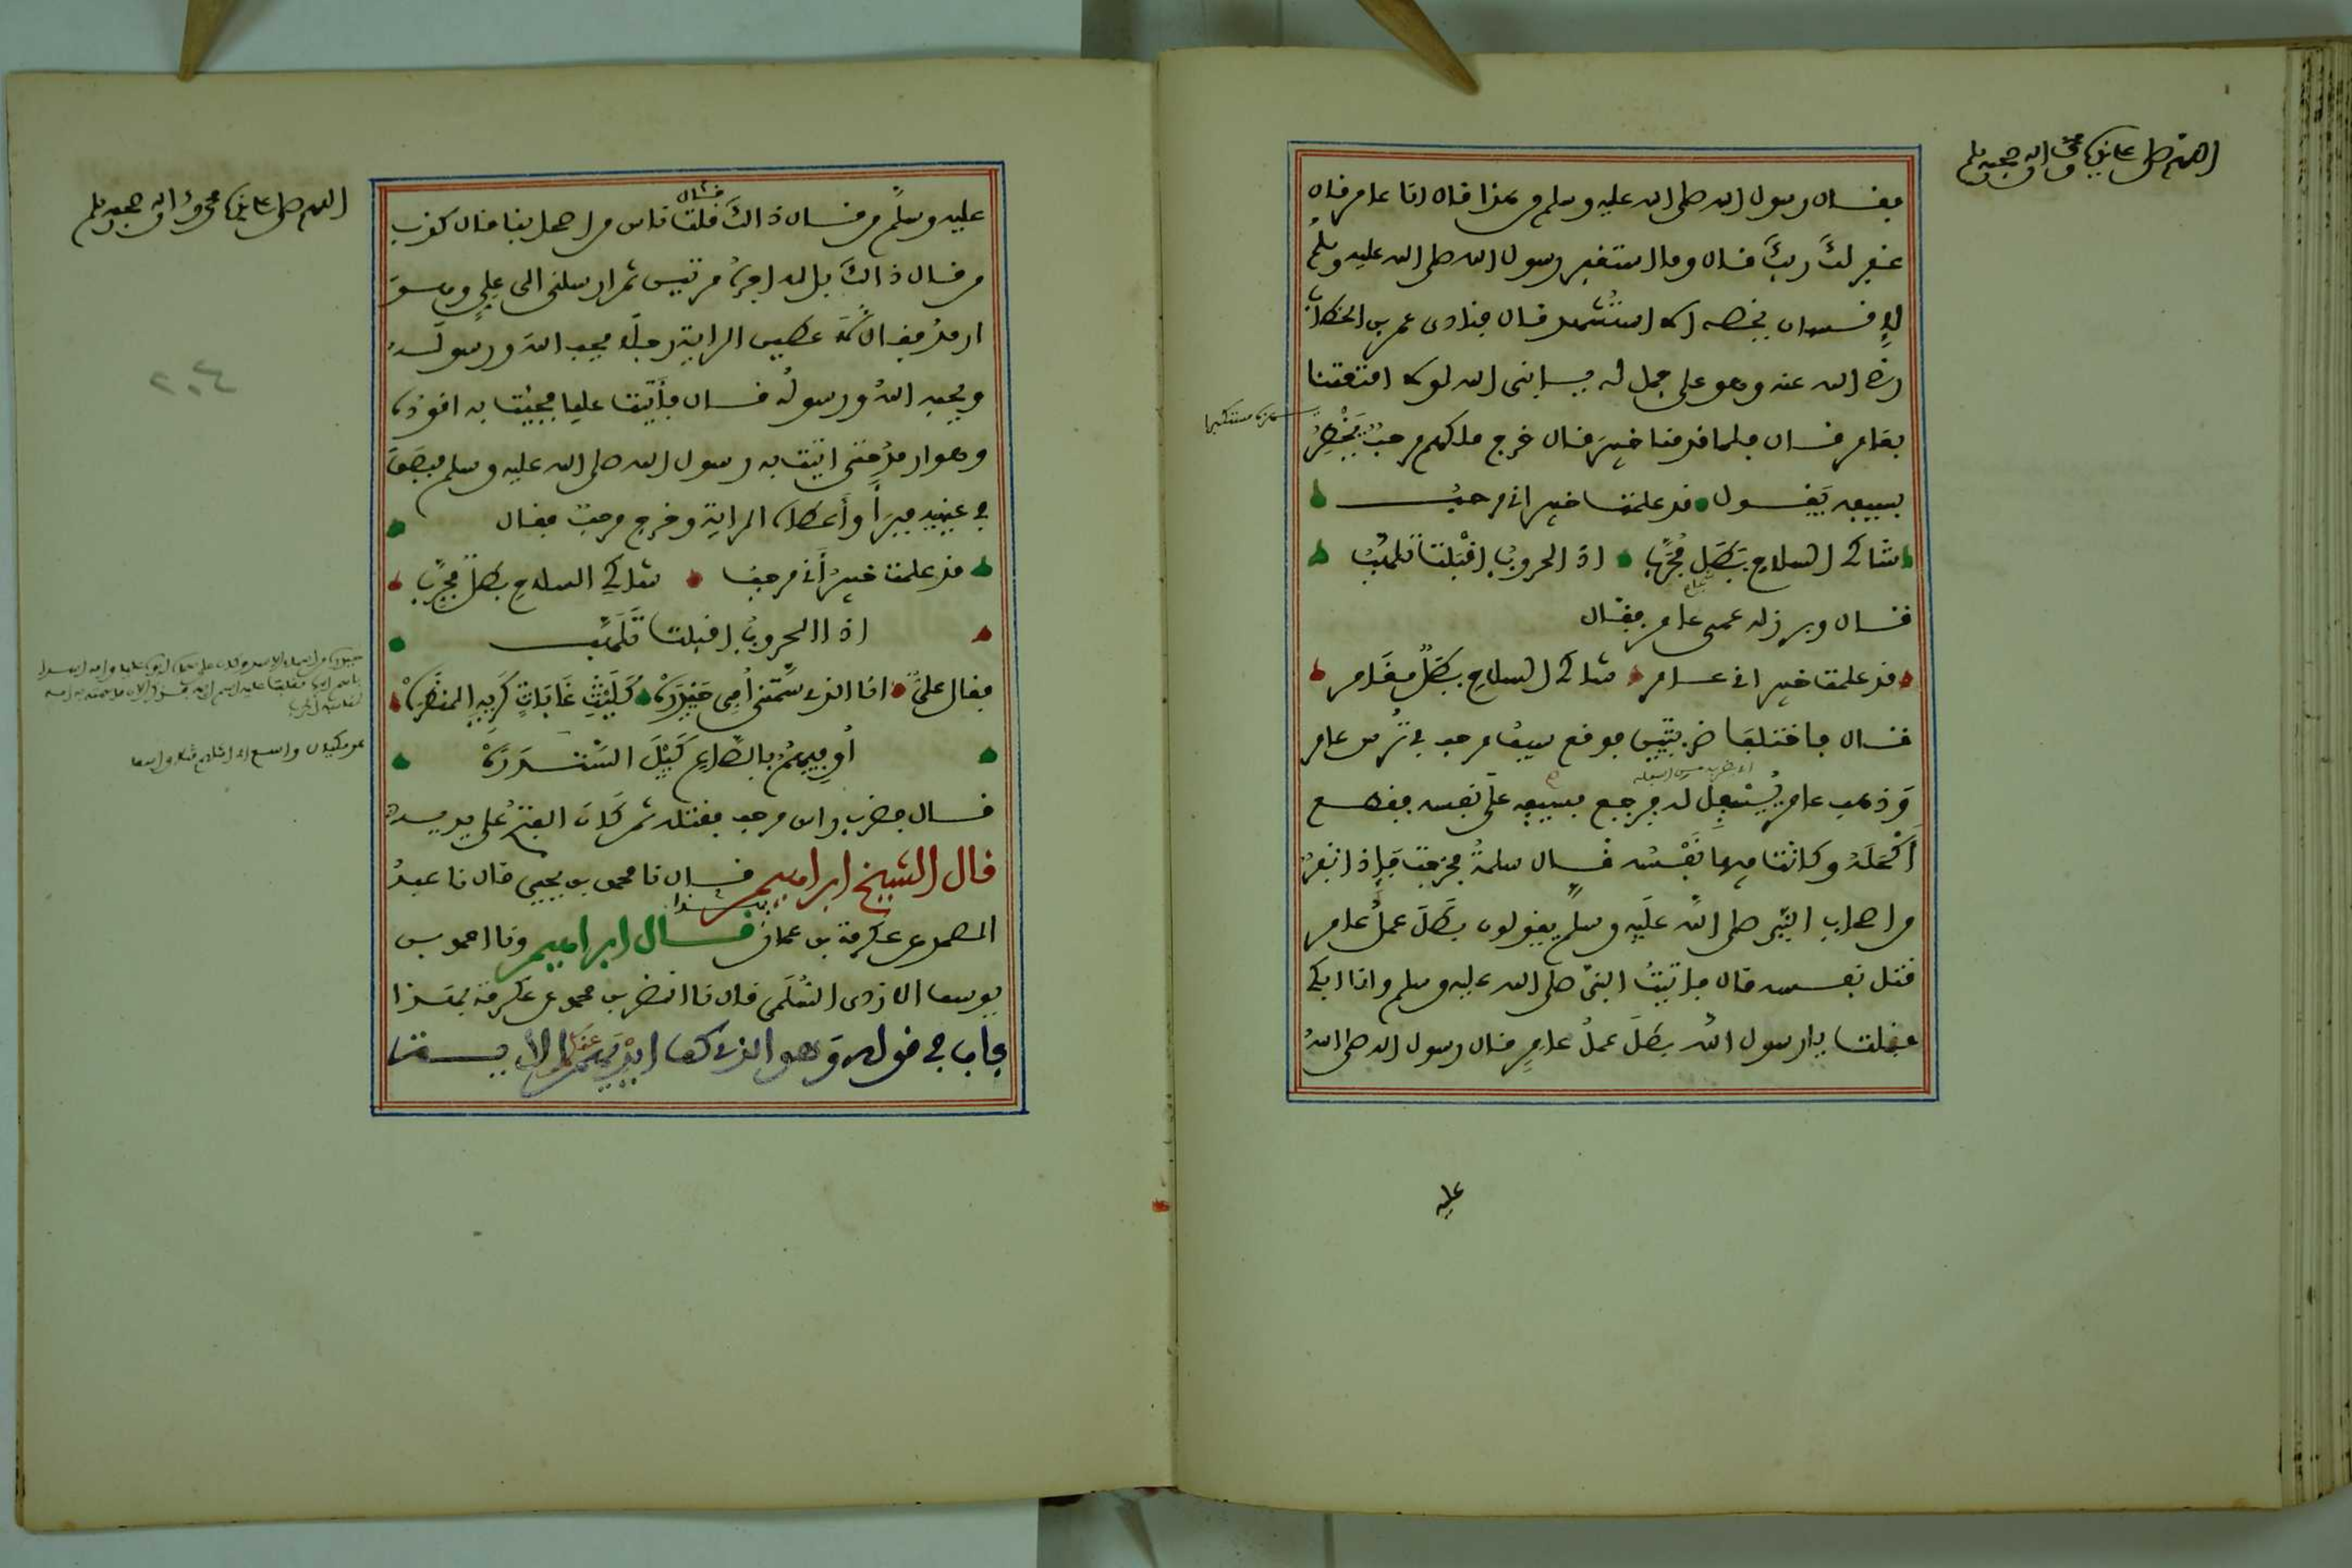 اللهم صل على سيدنا محمد وآله وصحبه وسلم
فقال رسول الله صلى الله عليه وسلم من هذا قال انا عامر قال
غفر لكَ ربكَ قال وما استغفر رسول الله صلى الله عليه وسلم
لإنسان يخصه الا استُشهد قال فنادى عمر بن الخطاب
رضي الله عنه وهو على جمل له يا نبي الله لولا امتعتنا
بعامر قال فلما قدمنا خيبرَ قال خرج ملكهم مرحبٌ يَخْطِرُ
بسيفه يَقول قد علمت خيبر اني مرحبُ
شاكي السلاحِ بَطَلٌ مُجَرَّب اذا الحروبُ اقْبَلتْ تَلهَّبُ
قال وبرز له عمي عامر فقال
قد علمت خيبر اني عامر شاكي السلاحِ بَطَلٌ مغَامر
قال فاختلفا ضربتين فوقع سيفُ مرحب في تُرس عامر
وَذهب عامر يَسْفِلُ له فرجع سيفه على نفسه فقطع
أَكْحَلَهُ وكانت فيها نَفْسُه قال سلمةُ فخرجت فإذا نفرٌ
من اصحاب النبي صلى اللهُ علَيهِ وسلم يقولون بَطَلَ عملُ عامر
قتل نفسه قال فاتيتُ النبيَّ صلى الله عليه وسلم وانا ابكي
فقلت يا رسول الله بطَلَ عملُ عامرٍ قال رسول الله صلى اللهُ
عليه
اللهم صل على سيدنا محمد وآله وصحبه وسلم
عليه وسلَّم من قال ذالكَ قلت ناس من اصحابنا فقال كذب
من قال ذالكَ بل له اجرُه مرتين ثم ارسلني الى عليٍّ وهو
ارمدُ فقال لأعطين الرايةَ رجلًا يحب اللهَ ورسولَه
ويحبه اللهُ ورسولُه قال فأَتيت عليا فجئت به اقوده
وهو ارمدُ حتى اتيت به رسول الله صلى الله عليه وسلم فبصَقَ
في عينيه فبرَأَ وأَعطاه الرايةَ وخرج مرحبٌ فقال
قد علمت خيبرُ أَني مرحب شاكي السلاحِ بطلٌ مجرَّبُ
اذا الحروبُ اقبلت تَلَهَّب
فقال عليٌّ انا الذي سمَّتني أُمي حَيْدَرَهْ كَلَيْثِ غَابَاتٍ كَريهِ المنظَرَهْ
أُوفيهمُ بالصَّاعِ كَيْلَ السَّنْدَرَهْ
قال فضرب راس مرحب فقتله ثم كَانَ الفتحُ على يديه
قال الشيخ ابراهيم قال نا محمد بن يحيى قال نا عبدُ
الصمد عن عكرمة بن عمار بهذا قال ابراهيم ونا احمد بن
يوسف الازدي السُّلَمي قال نا النضر بن محمد عن عكرمة بهذا
باب في قوله وَهو الذي كف ايْديَهم عنكم الآية